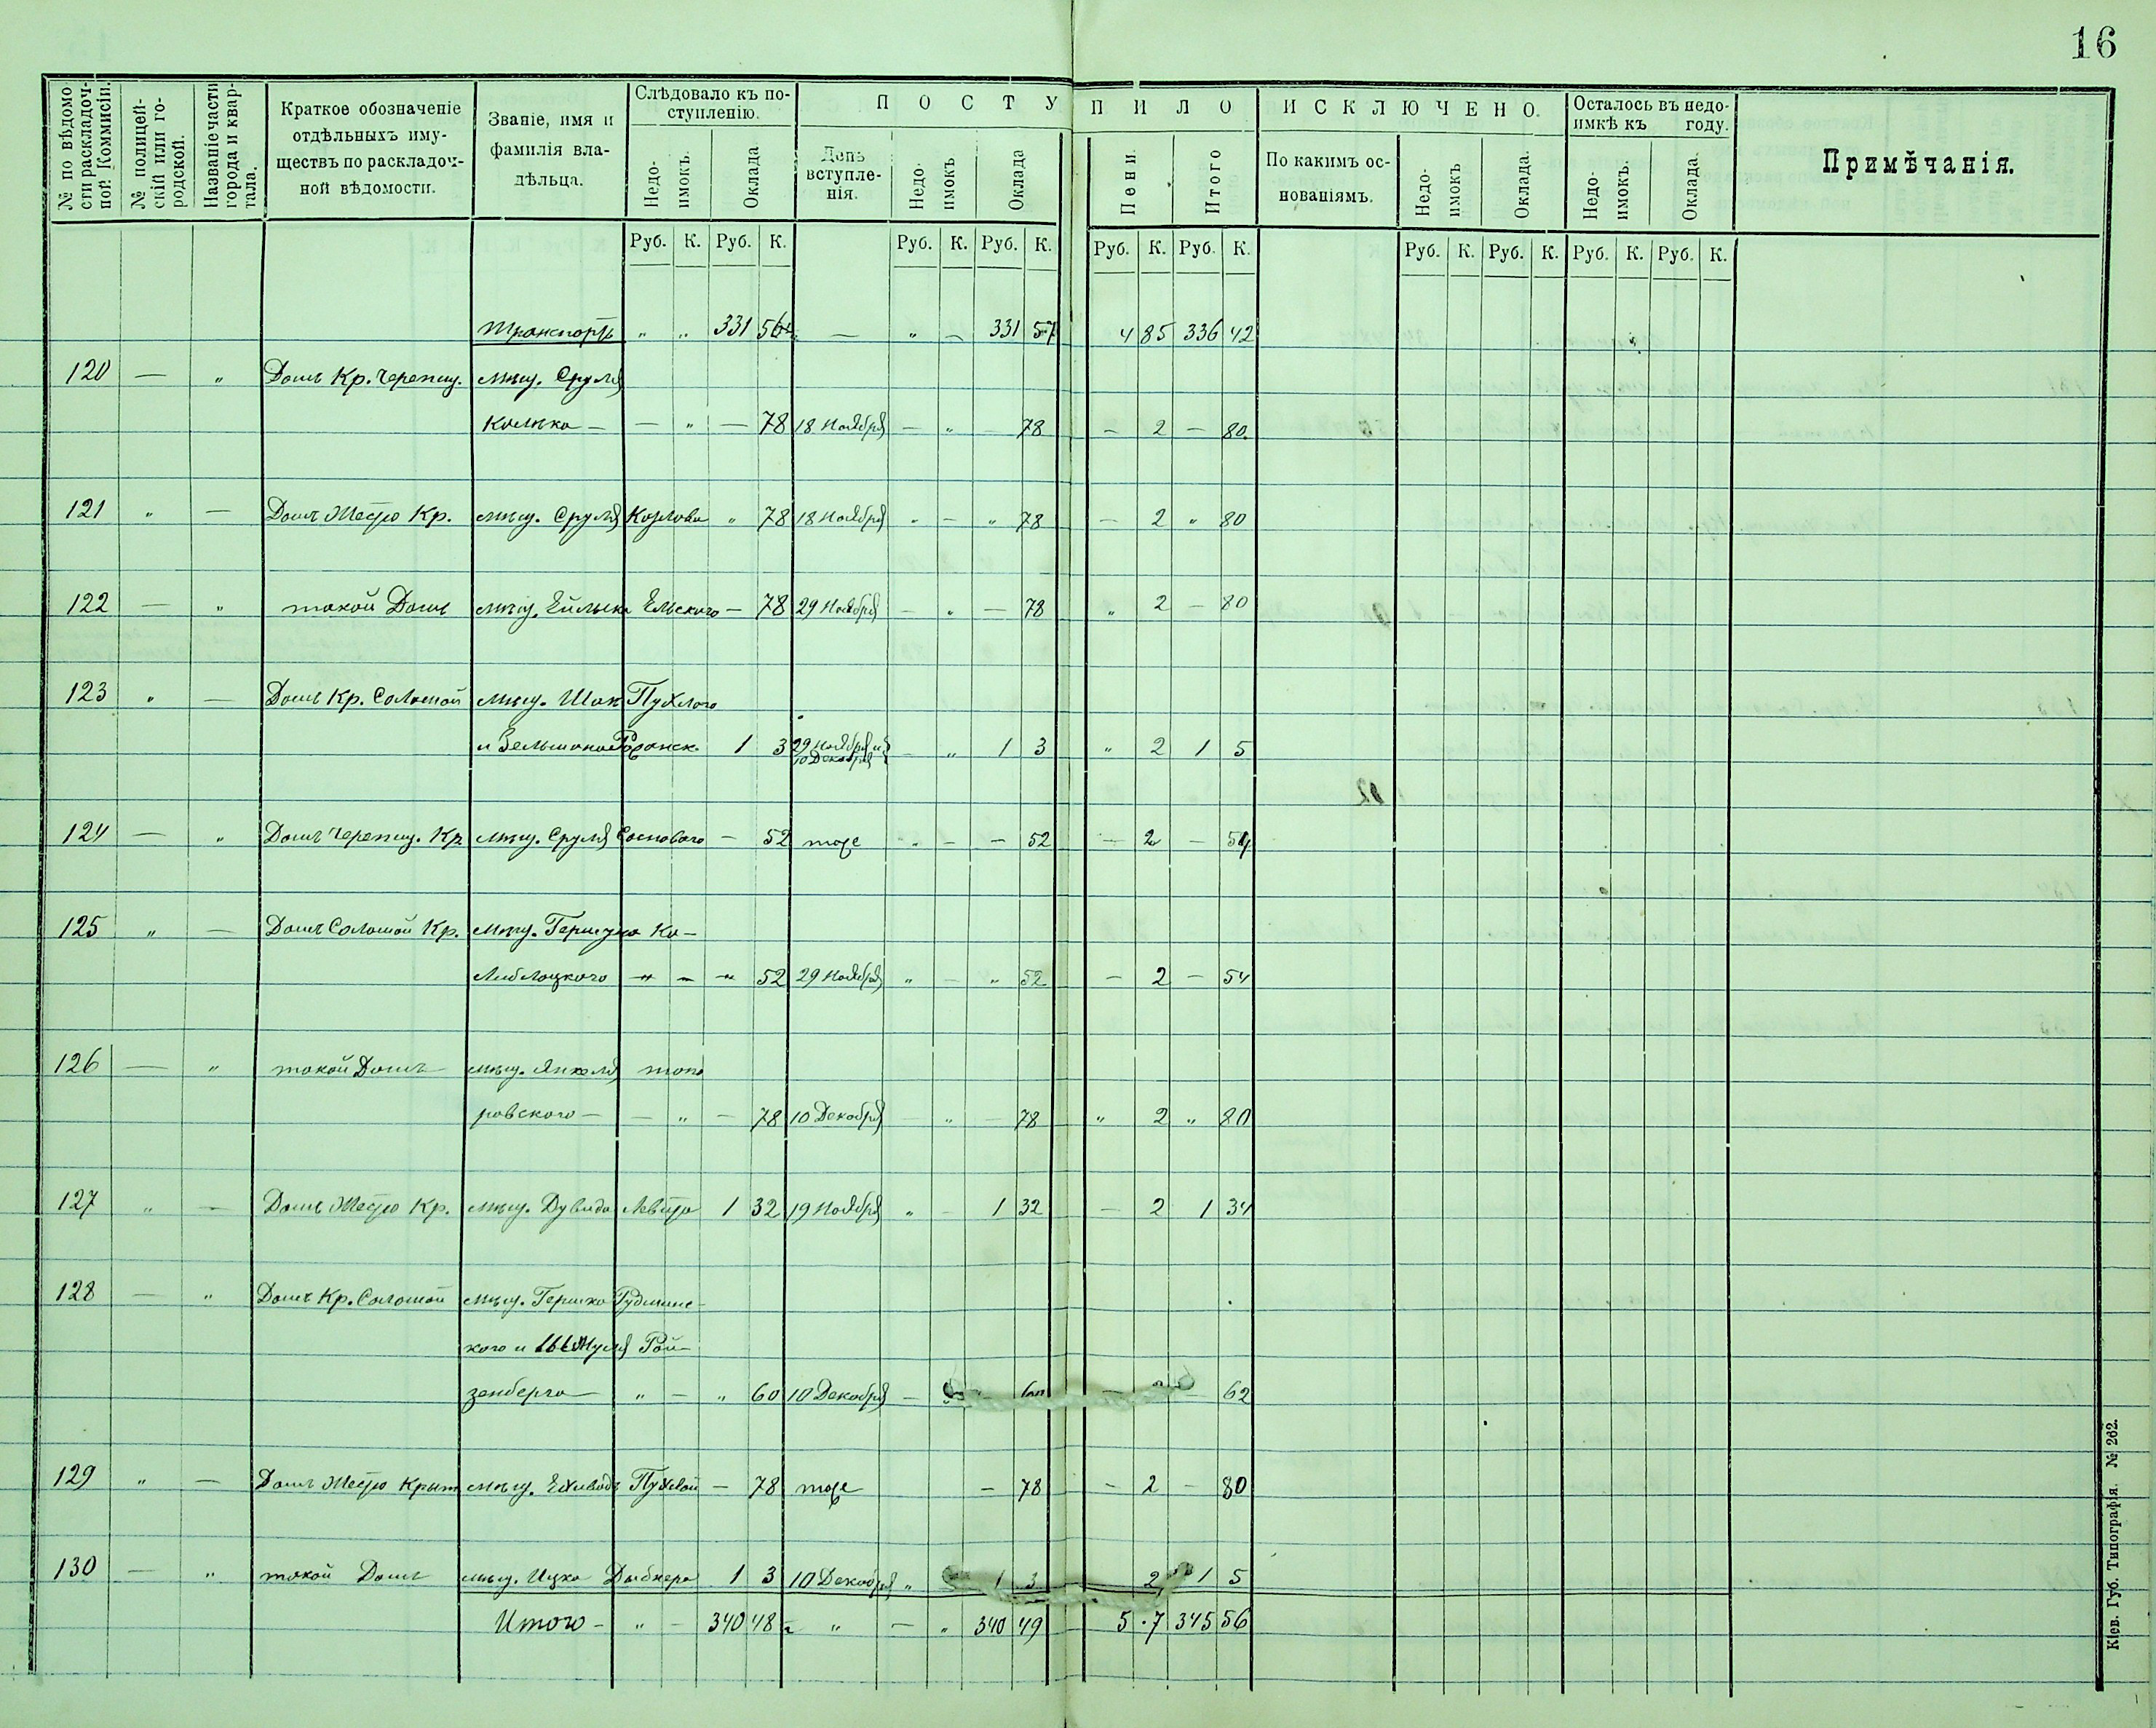 16
№ по вѣдомости раскладочной Коммисіи.
№ полицейскій или городской.
Названіе части города и квартала.
Краткое обозначеніе отдѣльныхъ имуществъ по раскладочной вѣдомости.
Званіе, имя и фамилія владѣльца.
Слѣдовало къ поступленію.
Недоимокъ.
Оклада
ПОСТУПИЛО
День вступленія.
Недоимокъ
Оклада
Пени.
Итого
ИСКЛЮЧЕНО.
По какимъ основаніямъ.
Недоимокъ
Оклада.
Осталось въ недоимкѣ къ году.
Недоимокъ.
Оклада.
Примѣчанія.
Руб. К. Руб. К. Руб. К. Руб. К. Руб. К. Руб. К. Руб. К. Руб. К. Руб. К. Руб. К.
Транспортъ " " 331 56½ — " — 331 57 4 85 336 42
120 — " Домъ Кр. Черепиц. мѣщ. Сруля
— " — 78 18 Ноября — " — 78 — 2 — 80
121 " — Домъ Жестю Кр. мѣщ. Сруля Козлова " 78 18 Ноября " — " 78 — 2 " 80
122 — " такой Домъ мѣщ. Ельского — 78 29 Ноября — " — 78 " 2 — 80
123 " — Домъ Кр. Соломой мѣщ. Пухлого
и 1 3 29 Ноября и 10 Декабря — " 1 3 " 2 1 5
124 — " Домъ Черепиц. Кр. мѣщ. Сруля Соснового — 52 тоже " — — 52 — 2 — 54
125 " — Домъ Соломой Кр. мѣщ. Ка-
" — " 52 29 Ноября " — " 52 — 2 — 54
126 — " такой Домъ мѣщ. Янкеля Топо
ровского — — " — 78 10 Декабря — " — 78 " 2 " 80
127 " — Домъ Жестю Кр. мѣщ. Дувида 1 32 19 Ноября " — 1 32 — 2 1 34
128 — " Домъ Кр. Соломой мѣщ. Гершка
кого и Рой-
зенберга " — " 60 10 Декабря — 60 — 2 — 62
129 " — Домъ Жестю Крыт мѣщ. Пухлой — 78 тоже — 78 — 2 — 80
130 — " такой Домъ мѣщ. Ицка 1 3 10 Декабря " 1 3 2 1 5
Итого — " — 340 48½ " — " 340 49 5 7 345 56
Кіев. Губ. Типографія. № 262.